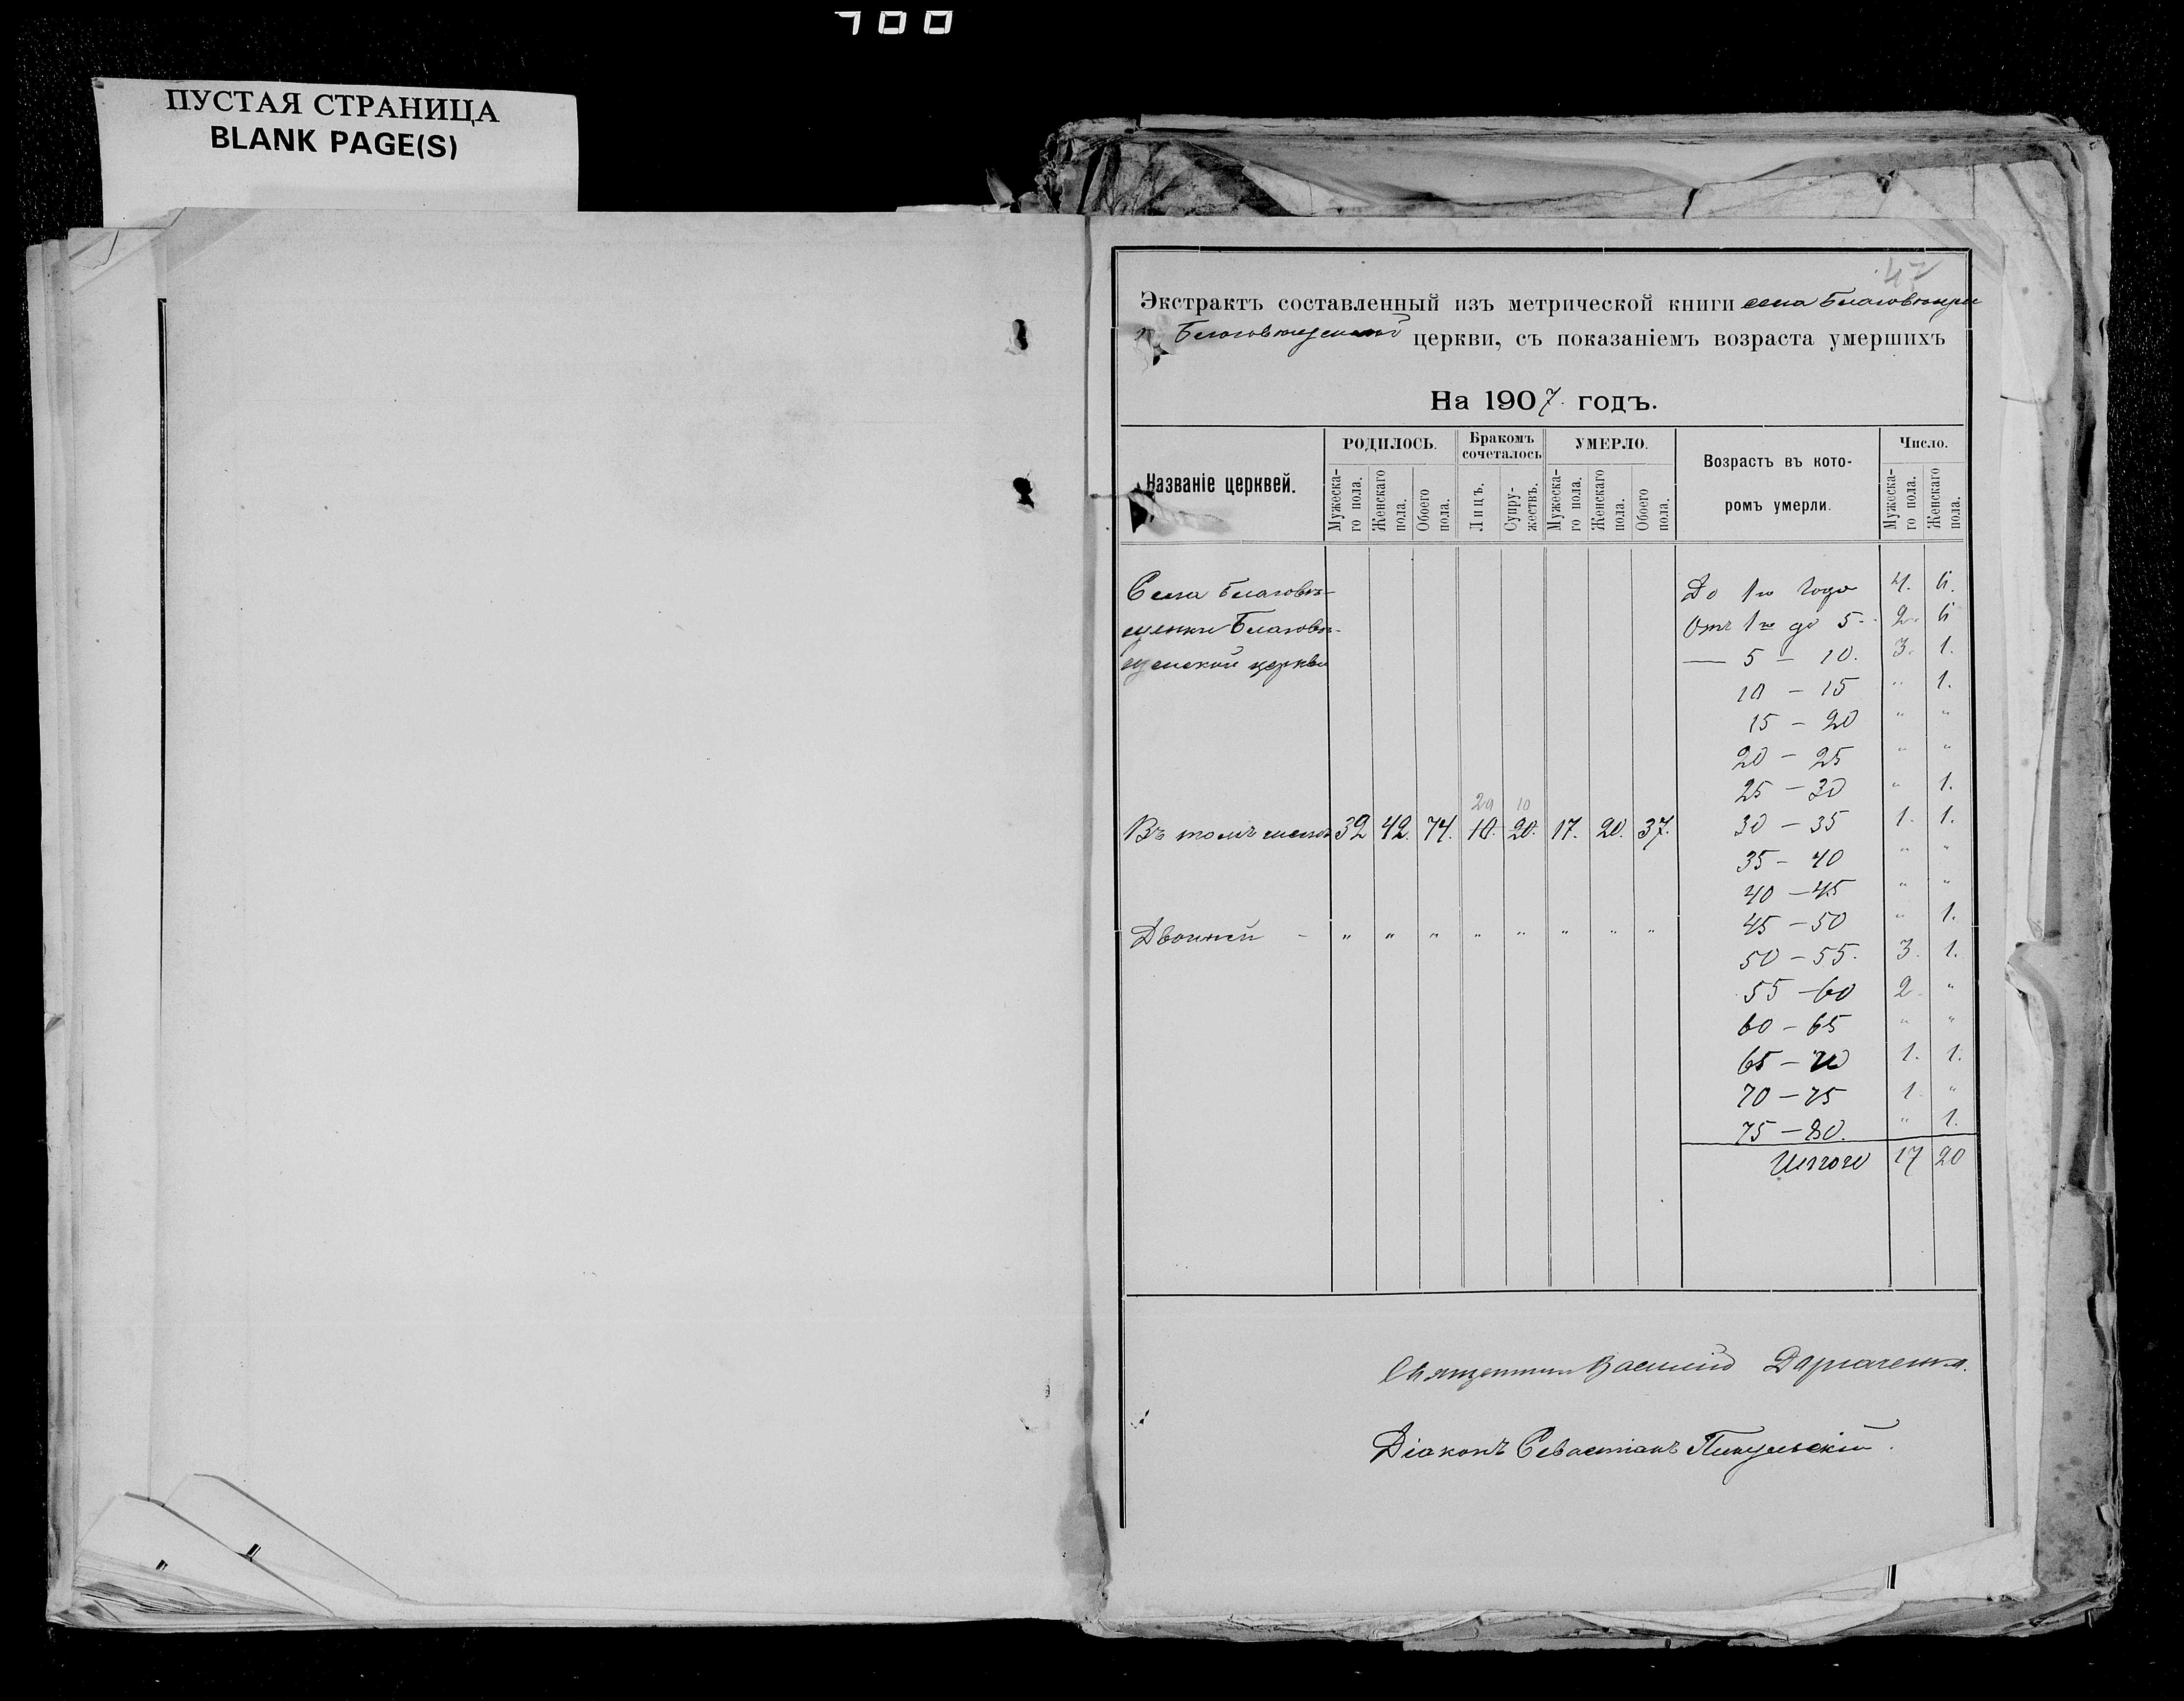 700
ПУСТАЯ СТРАНИЦА
BLANK PAGE(S)
47
Экстрактъ составленный изъ метрической книги села Благовѣщен
Благовѣщенской церкви, съ показаніемъ возраста умершихъ
На 1907. годъ.
Названіе церквей.
РОДИЛОСЬ.
Мужеска-го пола.
Женскаго пола.
Обоего пола.
Бракомъ сочеталось
Лицъ.
Супру-жествъ.
УМЕРЛО.
Мужеска-го пола.
Женскаго пола.
Обоего пола.
Возрастъ въ кото-
ромъ умерли.
Число.
Мужеска-го пола.
Женскаго пола.
Села Благовѣ-
щенки Благовѣ-
щенской церкви
До 1го года 4. 6.
Отъ 1го до 5 - 2. 6
— 5 - 10. 3. 1.
10 - 15 " 1.
15 - 20 " "
20 - 25 " "
25 - 30 " 1.
20 10
Въ томъ числѣ 32 42. 74. 10. 20. 17. 20. 37. 30 - 35 1. 1.
35 - 40 " "
40 - 45 " "
45 - 50 " 1.
Двойней - " " " " " " " "
50 - 55. 3. 1.
55 - 60 2. "
60 - 65 " "
65 - 70 1. 1.
70 - 75 1. "
75 - 80. " 1.
Итого 17 20
Священникъ Василій
Діаконъ Севастіанъ